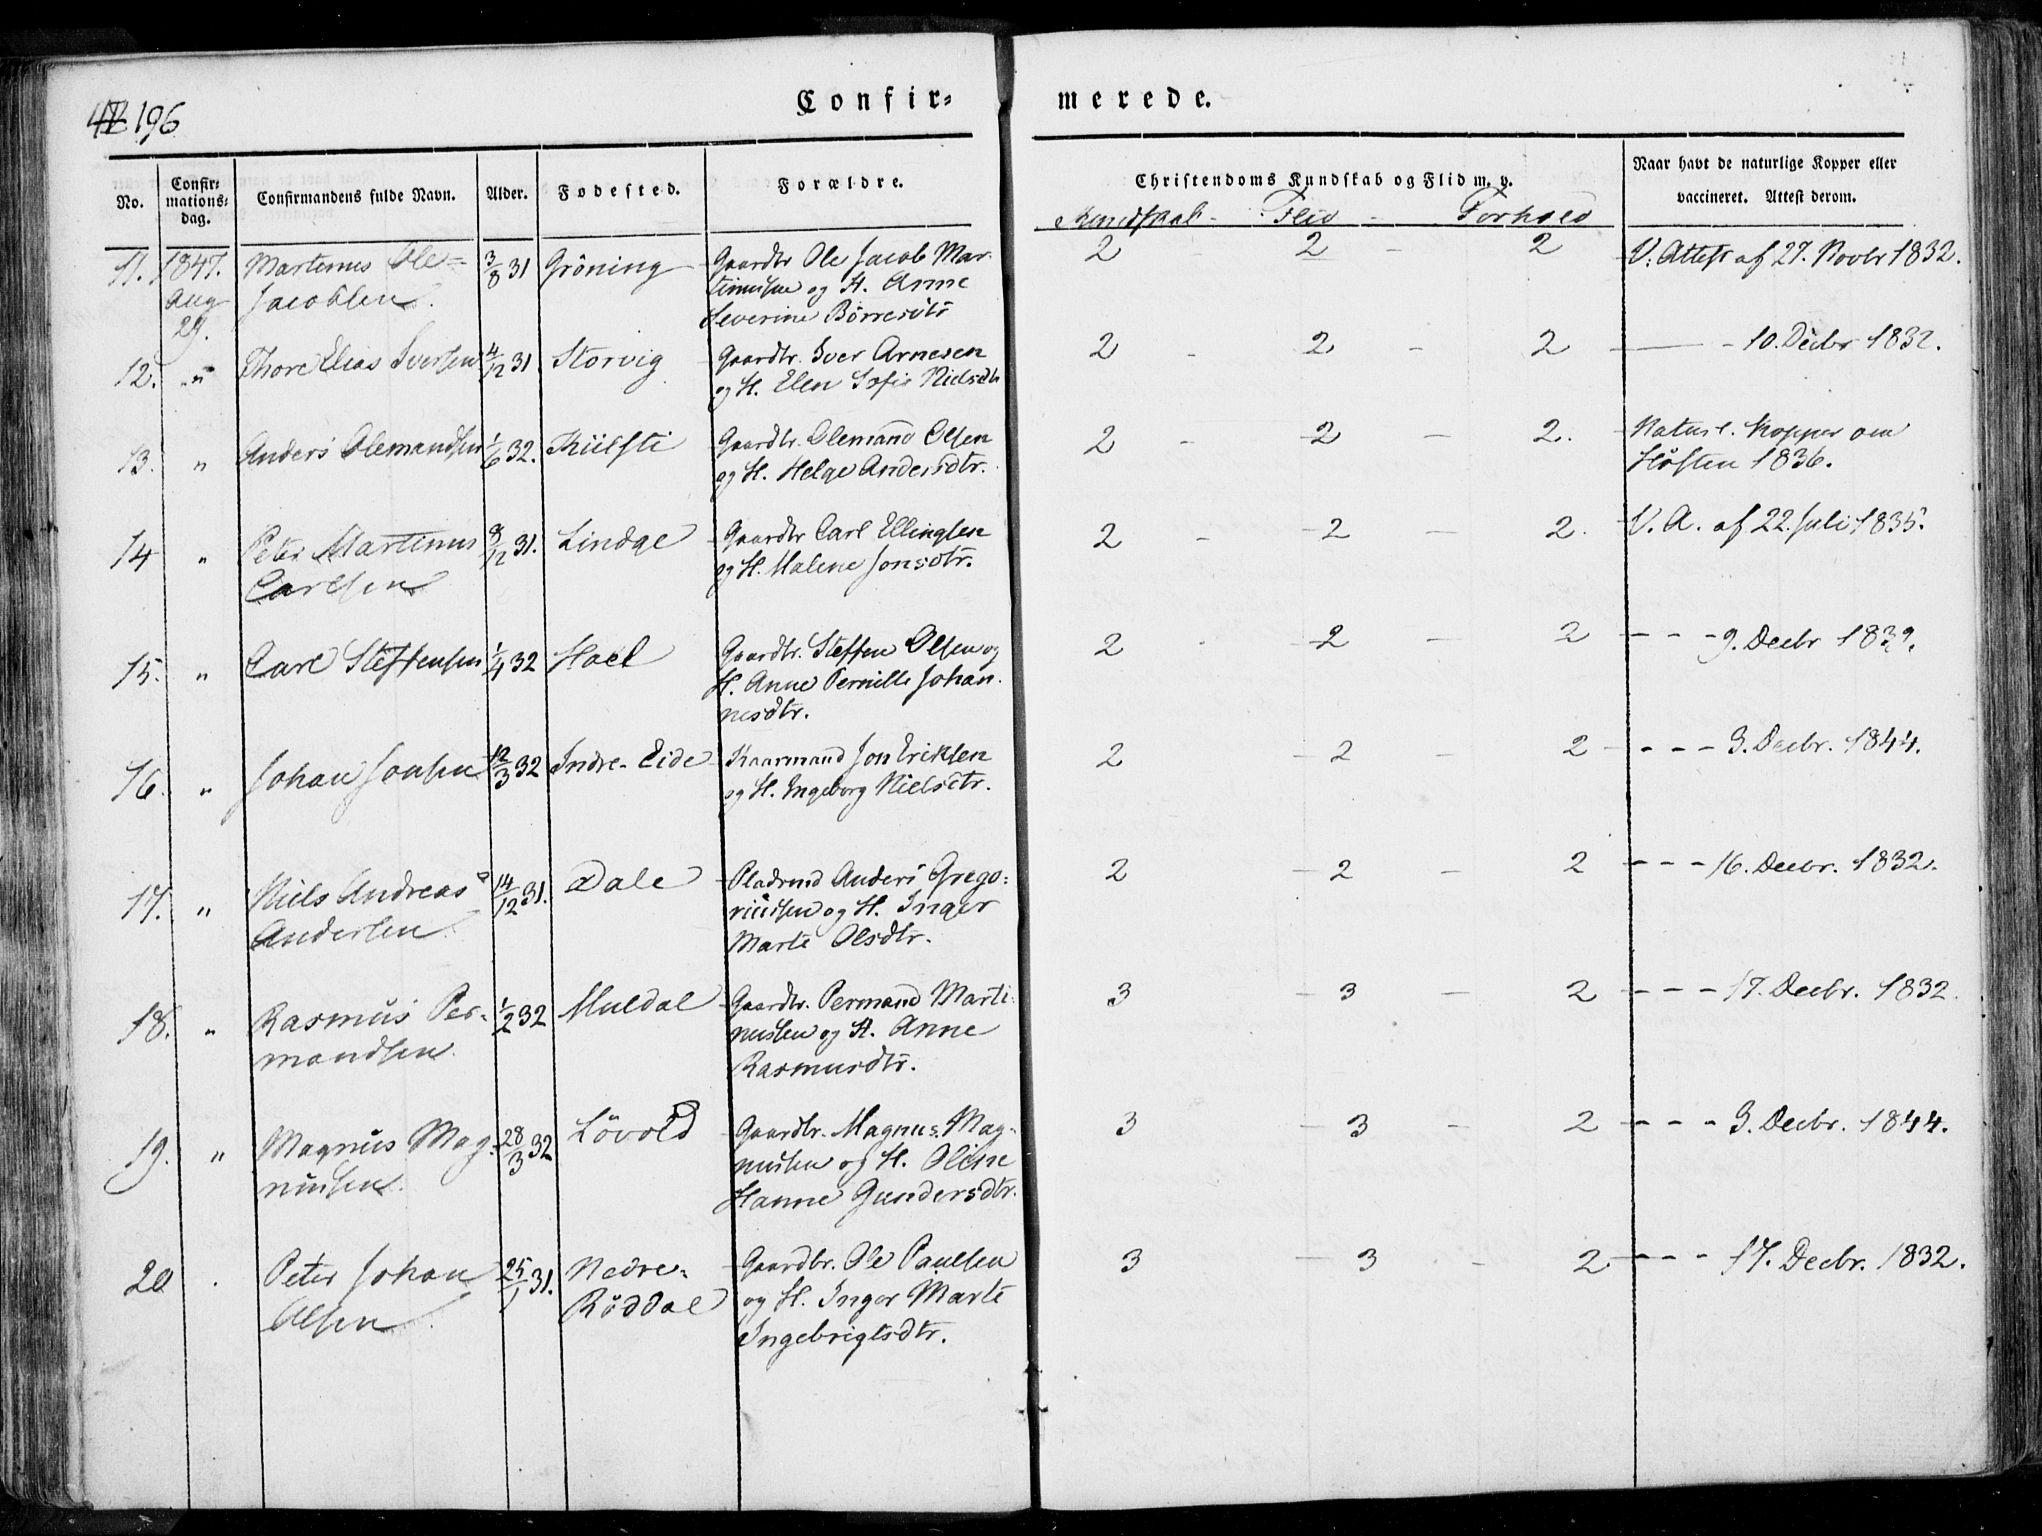 196
Confir= merede.
No. Confir= mations= dag. Confirmandens fulde Navn. Alder. Fødested. Forældre. Christendoms Kundskab og Flid m. v. Naar havt de naturlige Kopper eller vaccineret. Attest derom.
Kundskab - Flid - Forhold
11. 1847. Martinus Ole= 3/8 31 Gröning Gaardbr Ole Jacob Mar- 2 2 - 2 V. Attest af 27. Novbr 1832.
Aug Jacobsen. tinusen og H. Anne
29. Severine Börresdtr
12. " Thore Elias Iversen 4/12 31 Storvig Gaardbr. Iver Arnesen 2 - 2 - 2 - 10. Decbr 1832.
og H. Elen Sofie Nielsdtr
13. " Anders Olemandsen 1/6 32. Kiilsti Gaardbr. Olemand Olsen 2 - 2 - 2. Naturl. Kopper om
og H. Helge Andersdtr. Høsten 1836.
14 " Peter Martinus 9/12 31. Lindge Gaardbr Carl Ellingsen 2 - 2 - 2. V. A. af 22. Juli 1835.
Carlsen og H. Malene Jonsdtr.
15. " Carl Steffensen 1/4 32 Hoel Gaardbr. Steffen Olsen og 2 - 2 - 2 - - - 9. Decbr 1832.
H. Anne Pernille Johan-
nesdtr.
16. " Johan Jonsen 12/3 32 Indre-Eide Kaarmand Jon Eriksen 2 - 2 - 2 - - - 3. Decbr. 1844.
og H. Ingeborg Nielsdtr.
17. " Niels Andreas 14/12 31. Dale Pladsmd Anders Grego= 2 - 2 - 2 - - - 16. Decbr. 1832.
Andersen riussen og H. Inger
Marte Olsdtr.
18. " Rasmus Per- 1/2 32 Muldal Gaardbr. Permand Marti- 3 - 3 - 2 - - - 17. Decbr. 1832.
mandsen nussen og H. Anne
Rasmusdtr.
19. " Magnus Mag- 28/3 32 Lövold Gaardbr. Magnus Mag- 3 - 3 - 2 - - - 3. Decbr. 1844.
nussen. nussen og H. Oline
Hanne Gundersdtr.
20 Peter Johan 25/1 31. Nedre- Gaardbr. Ole Paulsen 3 - 3 - 2 - - - 17. Decbr. 1832.
Olsen Röddal og H. Inger Marte
Ingebrigtsdtr.